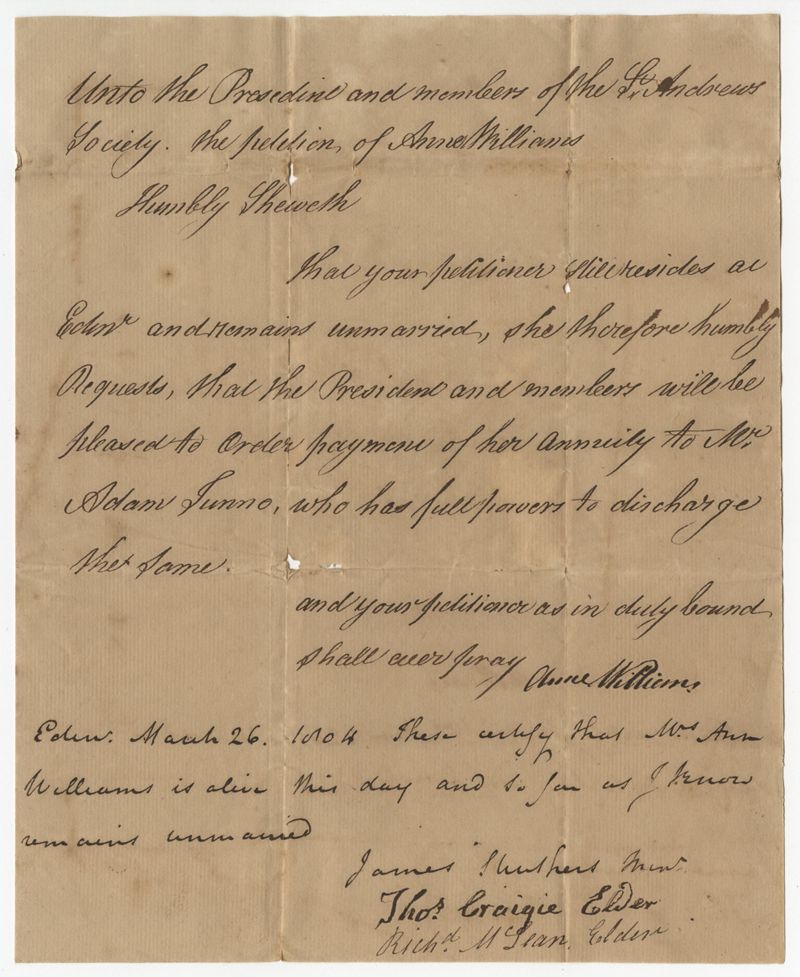 Unto the Presedint and members of the St. Andrews
Society. the petition, of Anne Williams
Humbly Sheweth
that your petitioner still resides at
Edinr. and remains unmarried, she therefore humbly
Requests, that the President and members will be
pleased to Order payment of her annuity to Mr.
Adam Tunno, who has full powers to discharge
the same.
and your petitioner as in duty bound
shall ever pray
Anne Williams
Edinr. March 26. 1804 These certify that Mrs Ann
Williams is alive this day and so far as I know
remains unmarried
James Struthers Minr.
Thos. Craigie Elder
Richd. McLean, Elder